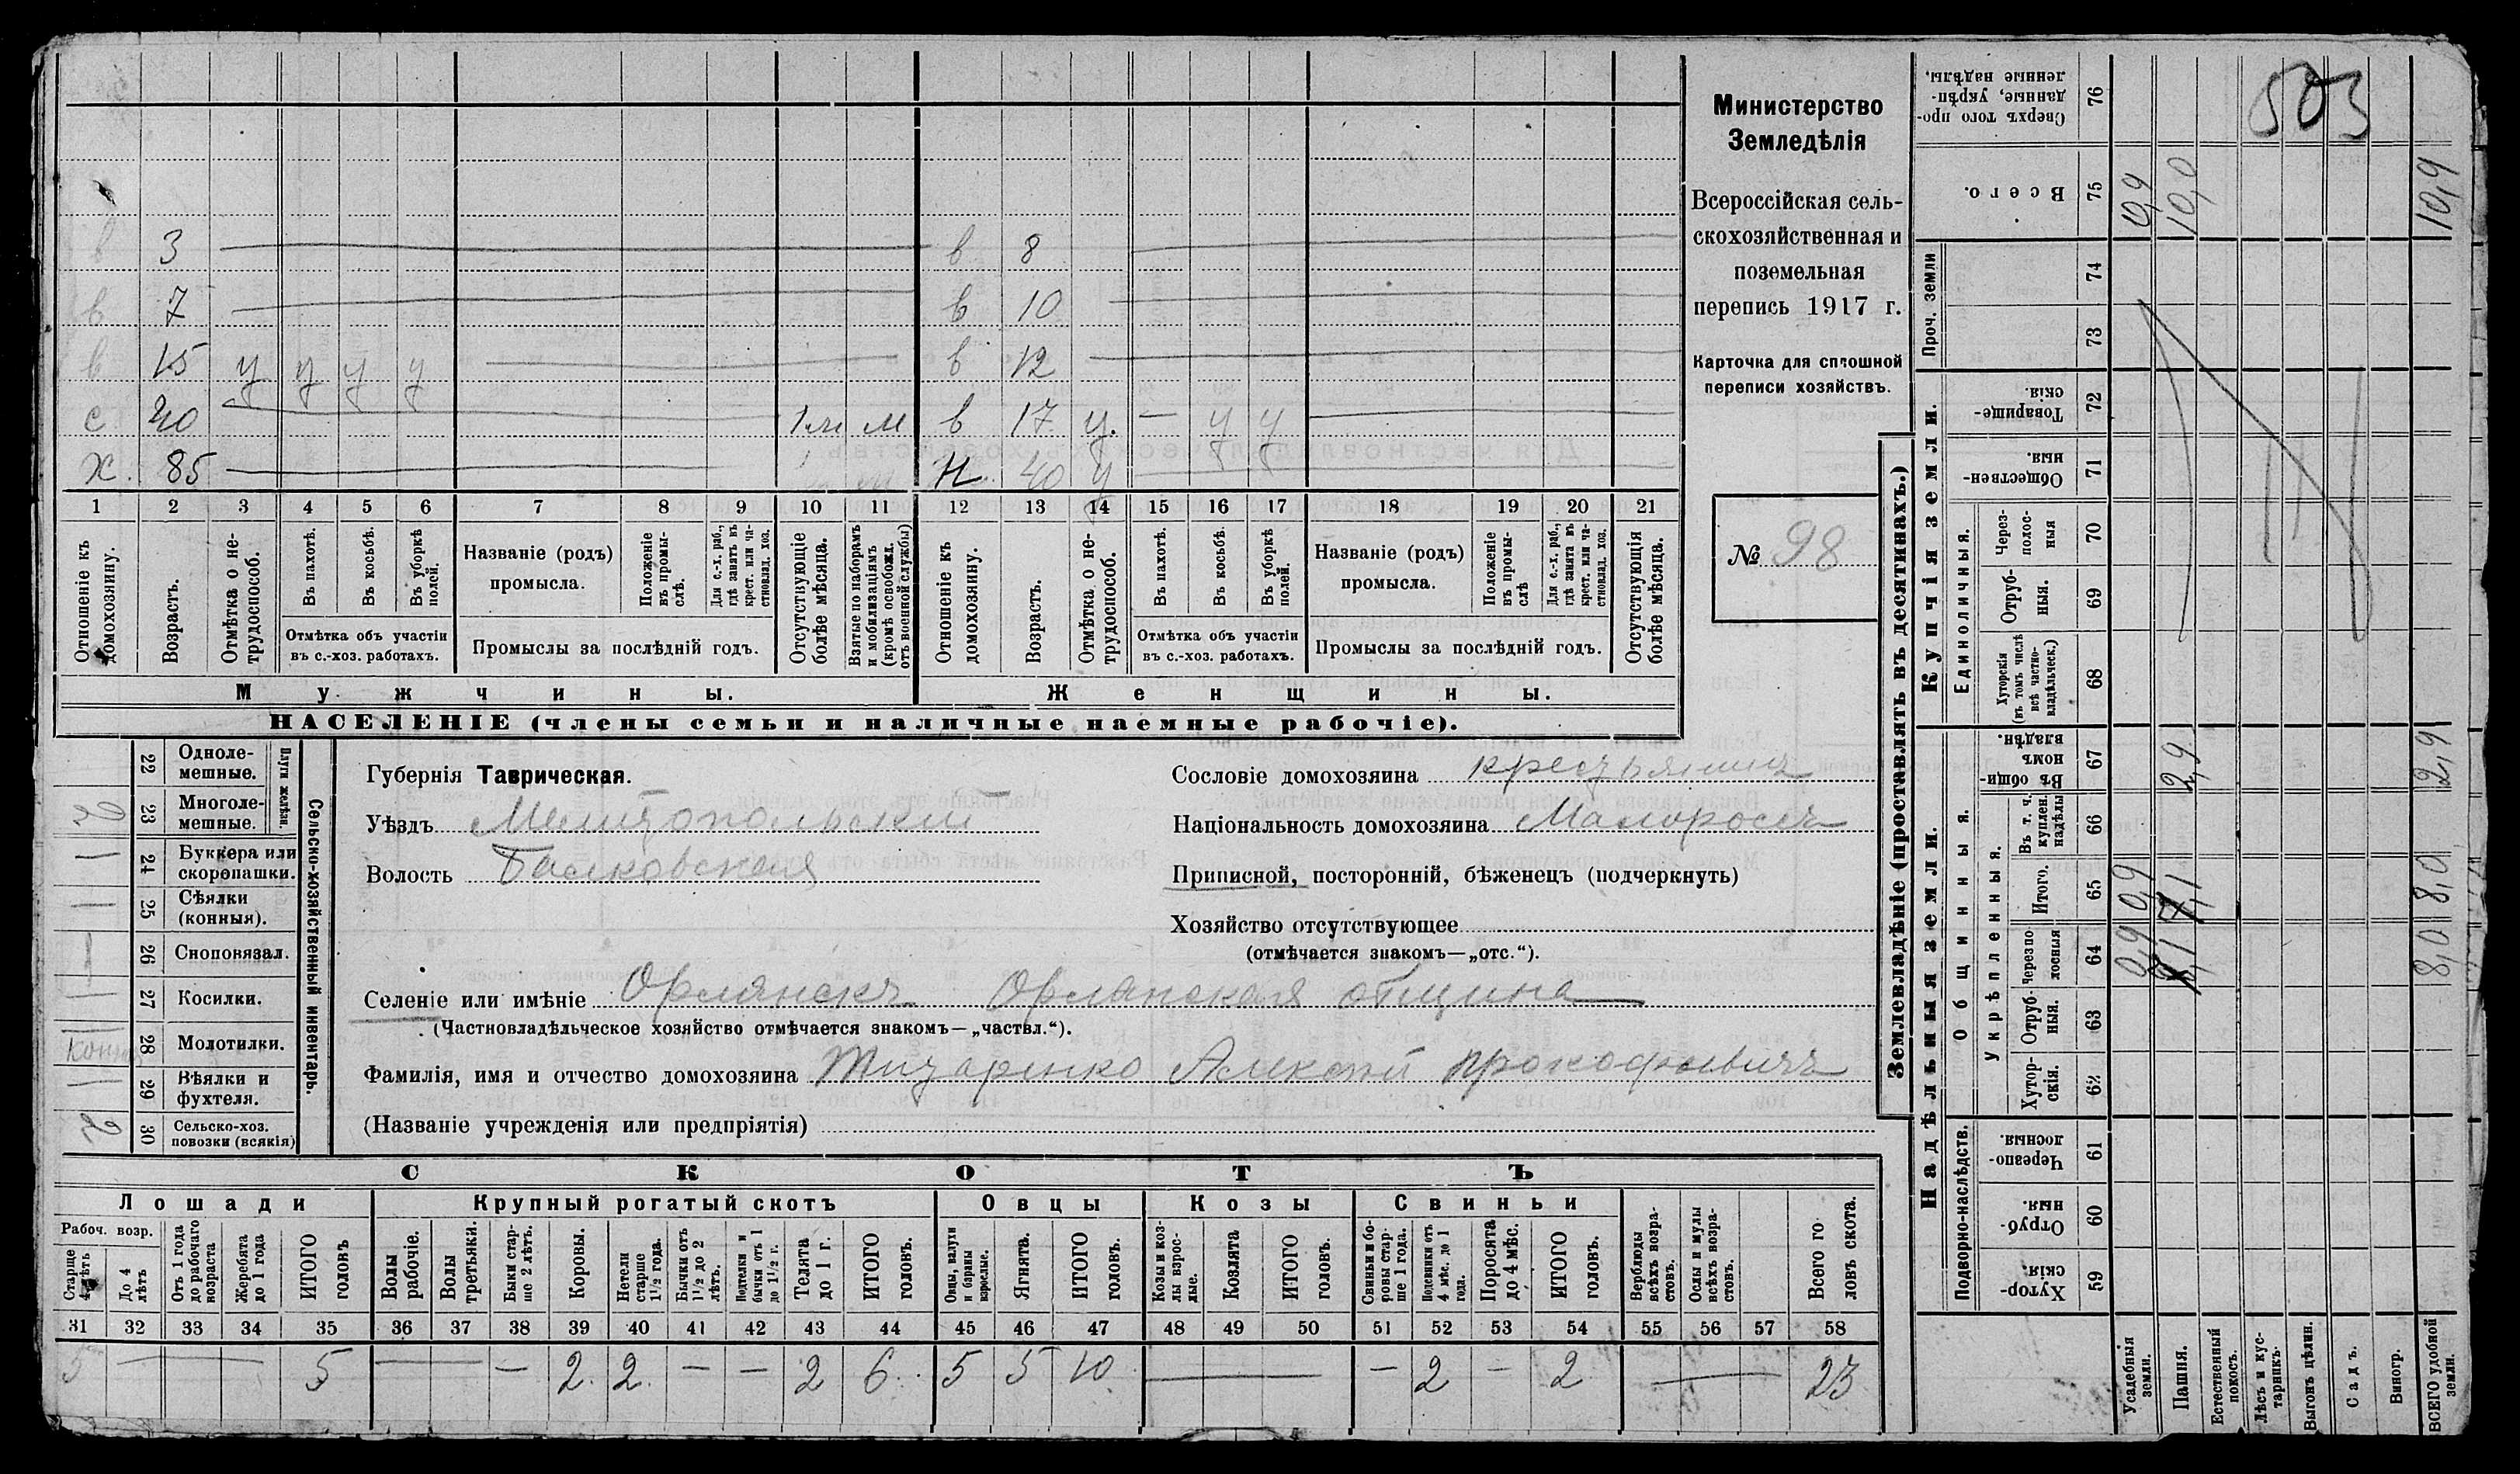 Министерство
Земледѣлія
Всероссійская сель-
скохозяйственная и
поземельная
перепись 1917 г.
Карточка для сплошной
переписи хозяйствъ.
№ 98
503
в 3 — в 8 —
в 7 — в 10 —
в 15 у у у у — в 12 —
с 40 — 1 м м в 17 у. — у у —
х. 85 — 40 у —
1 2 3 4 5 6 7 8 9 10 11 12 13 14 15 16 17 18 19 20 21
Отношеніе къ домохозяину.
Возрастъ.
Отмѣтка о не-трудоспособ.
Въ пахотѣ.
Въ косьбѣ.
Въ уборкѣ полей.
Отмѣтка объ участіи
въ с.-хоз. работахъ.
Названіе (родъ)
промысла.
Положеніе въ промы-слѣ.
Для с.-х. раб., гдѣ занятъ въ крест. или ча-стновлад. хоз.
Промыслы за послѣдній годъ.
Отсутствующіе болѣе мѣсяца.
Взятые по наборамъ и мобилизаціямъ (кромѣ освобожд. отъ военной службы)
Отношеніе къ домохозяину.
Возрастъ.
Отмѣтка о не-трудоспособ.
Въ пахотѣ.
Въ косьбѣ.
Въ уборкѣ полей.
Отмѣтка объ участіи
въ с.-хоз. работахъ.
Названіе (родъ)
промысла.
Положеніе въ промы-слѣ
Для с.-х. раб., гдѣ занята въ крест. или ча-стновлад. хоз.
Промыслы за послѣдній годъ.
Отсутствующія болѣе мѣсяца.
Мужчины.
Женщины.
НАСЕЛЕНІЕ (члены семьи и наличные наемные рабочіе).
Сельско-хозяйственный инвентарь.
Плуги желѣзн.
22 Одноле-
мешные.
2 23 Многоле-
мешные.
— 24 Буккера или
скоропашки.
— 25 Сѣялки
(конныя).
26 Сноповязал.
— 27 Косилки.
28 Молотилки.
— 29 Вѣялки и
фухтеля.
2 30 Сельско-хоз.
повозки (всякія)
Губернія Таврическая.
Уѣздъ Мелитопольский
Волость Балковская
Сословіе домохозяина крестьянинъ
Національность домохозяина Малороссъ
Приписной, посторонній, бѣженецъ (подчеркнуть)
Хозяйство отсутствующее
(отмѣчается знакомъ—„отс.“).
Селеніе или имѣніе Орлянскъ Орлянская община
(Частновладѣльческое хозяйство отмѣчается знакомъ—„частвл.“).
Фамилія, имя и отчество домохозяина Титаренко Алексѣй Прокофьевичъ
(Названіе учрежденія или предпріятія)
СКОТЪ
Лошади
Крупный рогатый скотъ
Овцы
Козы
Свиньи
Рабоч. возр.
Старше 4 лѣтъ
До 4 лѣтъ
Отъ 1 года до рабочаго возраста
Жеребята до 1 года
ИТОГО головъ
Волы рабочіе.
Волы третьяки.
Быки стар-ше 2 лѣтъ.
Коровы.
Нетели старше 1½ года.
Бычки отъ 1½ до 2 лѣтъ.
Подтелки и бычки отъ 1 до 1½ г.
Телята до 1 г.
ИТОГО головъ.
Овцы, валухи и бараны взрослые.
Ягнята.
ИТОГО головъ.
Козы и коз-лы взрос-лые.
Козлята
ИТОГО головъ.
Свиньи и бо-ровы стар-ше 1 года.
Подсвинки отъ 4 мѣс. до 1 года.
Поросята до 4 мѣс.
ИТОГО головъ.
Верблюды всѣхъ возра-стовъ.
Ослы и мулы всѣхъ возра-стовъ.
Всего го ловъ скота.
31 32 33 34 35 36 37 38 39 40 41 42 43 44 45 46 47 48 49 50 51 52 53 54 55 56 57 58
5 — 5 — — 2 2 — — 2 6 5 5 10 — — 2 — 2 — 23
Землевладѣніе (проставлять въ десятинахъ.)
Надѣльныя земли.
Купчія земли.
Подворно-наслѣдств.
Общинныя.
Укрѣпленныя.
Единоличныя.
Проч. земли
Хутор-скія. 59
Отруб-ныя. 60
Черезпо-лосныя. 61
Хутор-скія. 62
Отруб-ныя. 63
Черезпо лосныя 64
Итого. 65
Въ т. ч. куплен. надѣлы 66
Въ общин номъ владѣн. 67
Хуторскія (въ томъ числѣ всѣ частно-владѣльческ.) 68
Отруб-ныя. 69
Через-полос-ныя 70
Обществен-ныя. 71
Товарище-скія 72
73
74
Всего. 75
Сверхъ того про-данные, укрѣп-ленные надѣлы. 76
Усадебныя земли. 0,9 0,9 0,9
Пашня. 7,1 7,1 2,9 10,0
Естественный покосъ.
Лѣсъ и кус-тарникъ.
Выгонъ цѣлин.
Садъ.
Виногр.
ВСЕГО удобной земли. 8,0 8,0 2,9 10,9